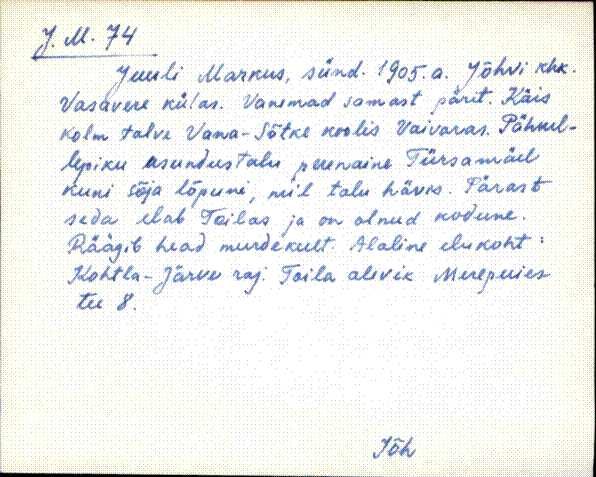 J. M. 74
Juuli Markus, sünd. 1905. a. Jõhvi khk.
Vasavere külas. Vanemad samast pärit. Käis
kolm talve Vana-Sõtke koolis Vaivaras. Pähkel-
lepiku asundustalu perenaine Türsamäel
kuni sõja lõpuni, mil talu hävis. Pärast
seda elab Toilas ja on olnud kodune.
Räägib head murdekeelt. Alaline elukoht:
Kohtla-Järve raj. Toila alevik Merepuies
tee 8.
Jõh